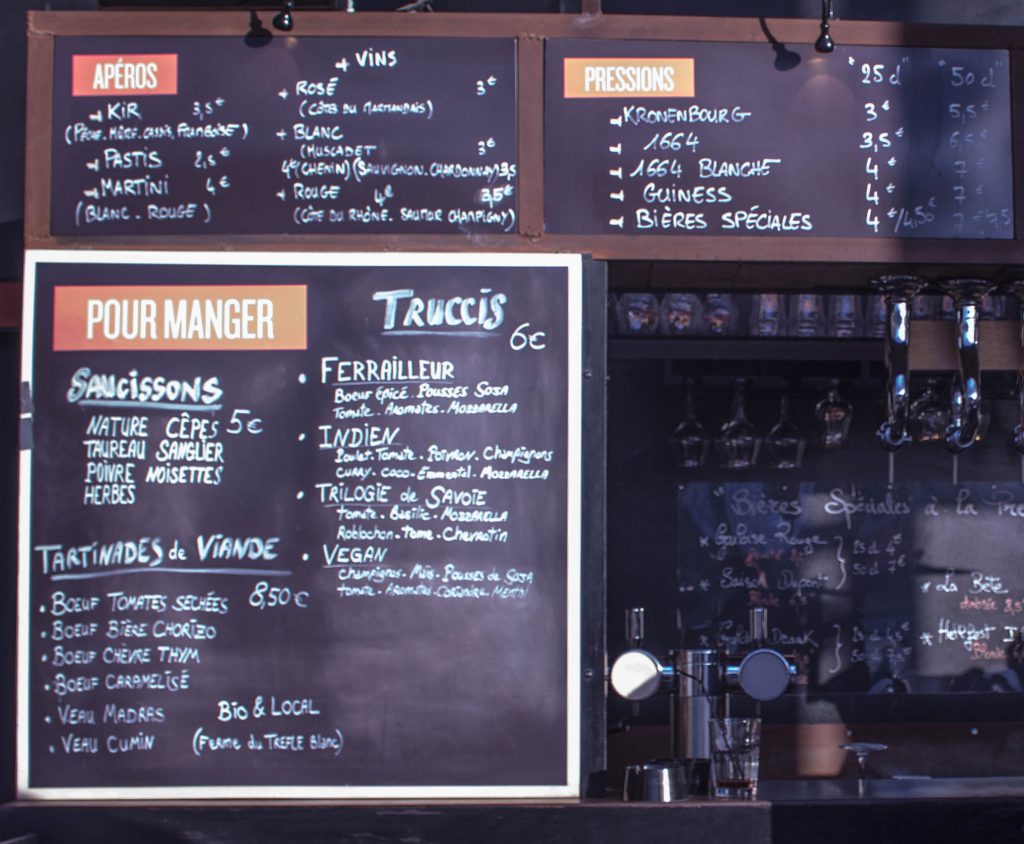 APÉROS
KIR 3,5€
(PÊCHE. MÛRE. CASSIS, FRAMBOISE)
PASTIS 2,5€
MARTINI 4€
(BLANC. ROUGE)
VINS
ROSÉ 3€
(CÔTES DU MARMANDAIS)
BLANC
(MUSCADET 3€
4€(CHENIN)(SAUVIGNON. CHARDONNAY)3,5
ROUGE 4€ 3,5€
(CÔTE DU RHÔNE. SAUMUR CHAMPIGNY)
PRESSIONS "25 cl" "50 cl"
KRONENBOURG 3€ 5,5€
1664 3,5€ 6,5€
1664 BLANCHE 4€ 7€
GUINESS 4€ 7€
BIÈRES SPÉCIALES 4€/4,50€ 7€/7,5
POUR MANGER
SAUCISSONS
NATURE CÊPES 5€
TAUREAU SANGLIER
POIVRE NOISETTES
HERBES
TARTINADES de VIANDE
8,50€
• BOEUF TOMATES SECHÉES
• BOEUF BIÈRE CHORIZO
• BOEUF CHÈVRE THYM
• BOEUF CARAMELISÉ
• VEAU MADRAS
• VEAU CUMIN
BIO & LOCAL
(Ferme du TREFLE Blanc)
TRUCCIS
6€
• FERRAILLEUR
Boeuf épicé. Pousses Soja
Tomate. Aromates. Mozzarella
• INDIEN
Poulet. Tomate. Poivron. Champignons
Curry. Coco. Emmental. Mozzarella
• TRILOGIE de SAVOIE
Tomate. Basilic. Mozzarella
Roblochon. Tome. Chevrotin
• VEGAN
Champignons. Maïs. Pousses de Soja
Tomate. Aromates. Coriandre
Bières Spéciales à la
Rouge
25 cl 4€
50 cl 7€
Saison Dupont
25 cl 4,5€
50 cl 7,5€
* La Bête
* Hopfest